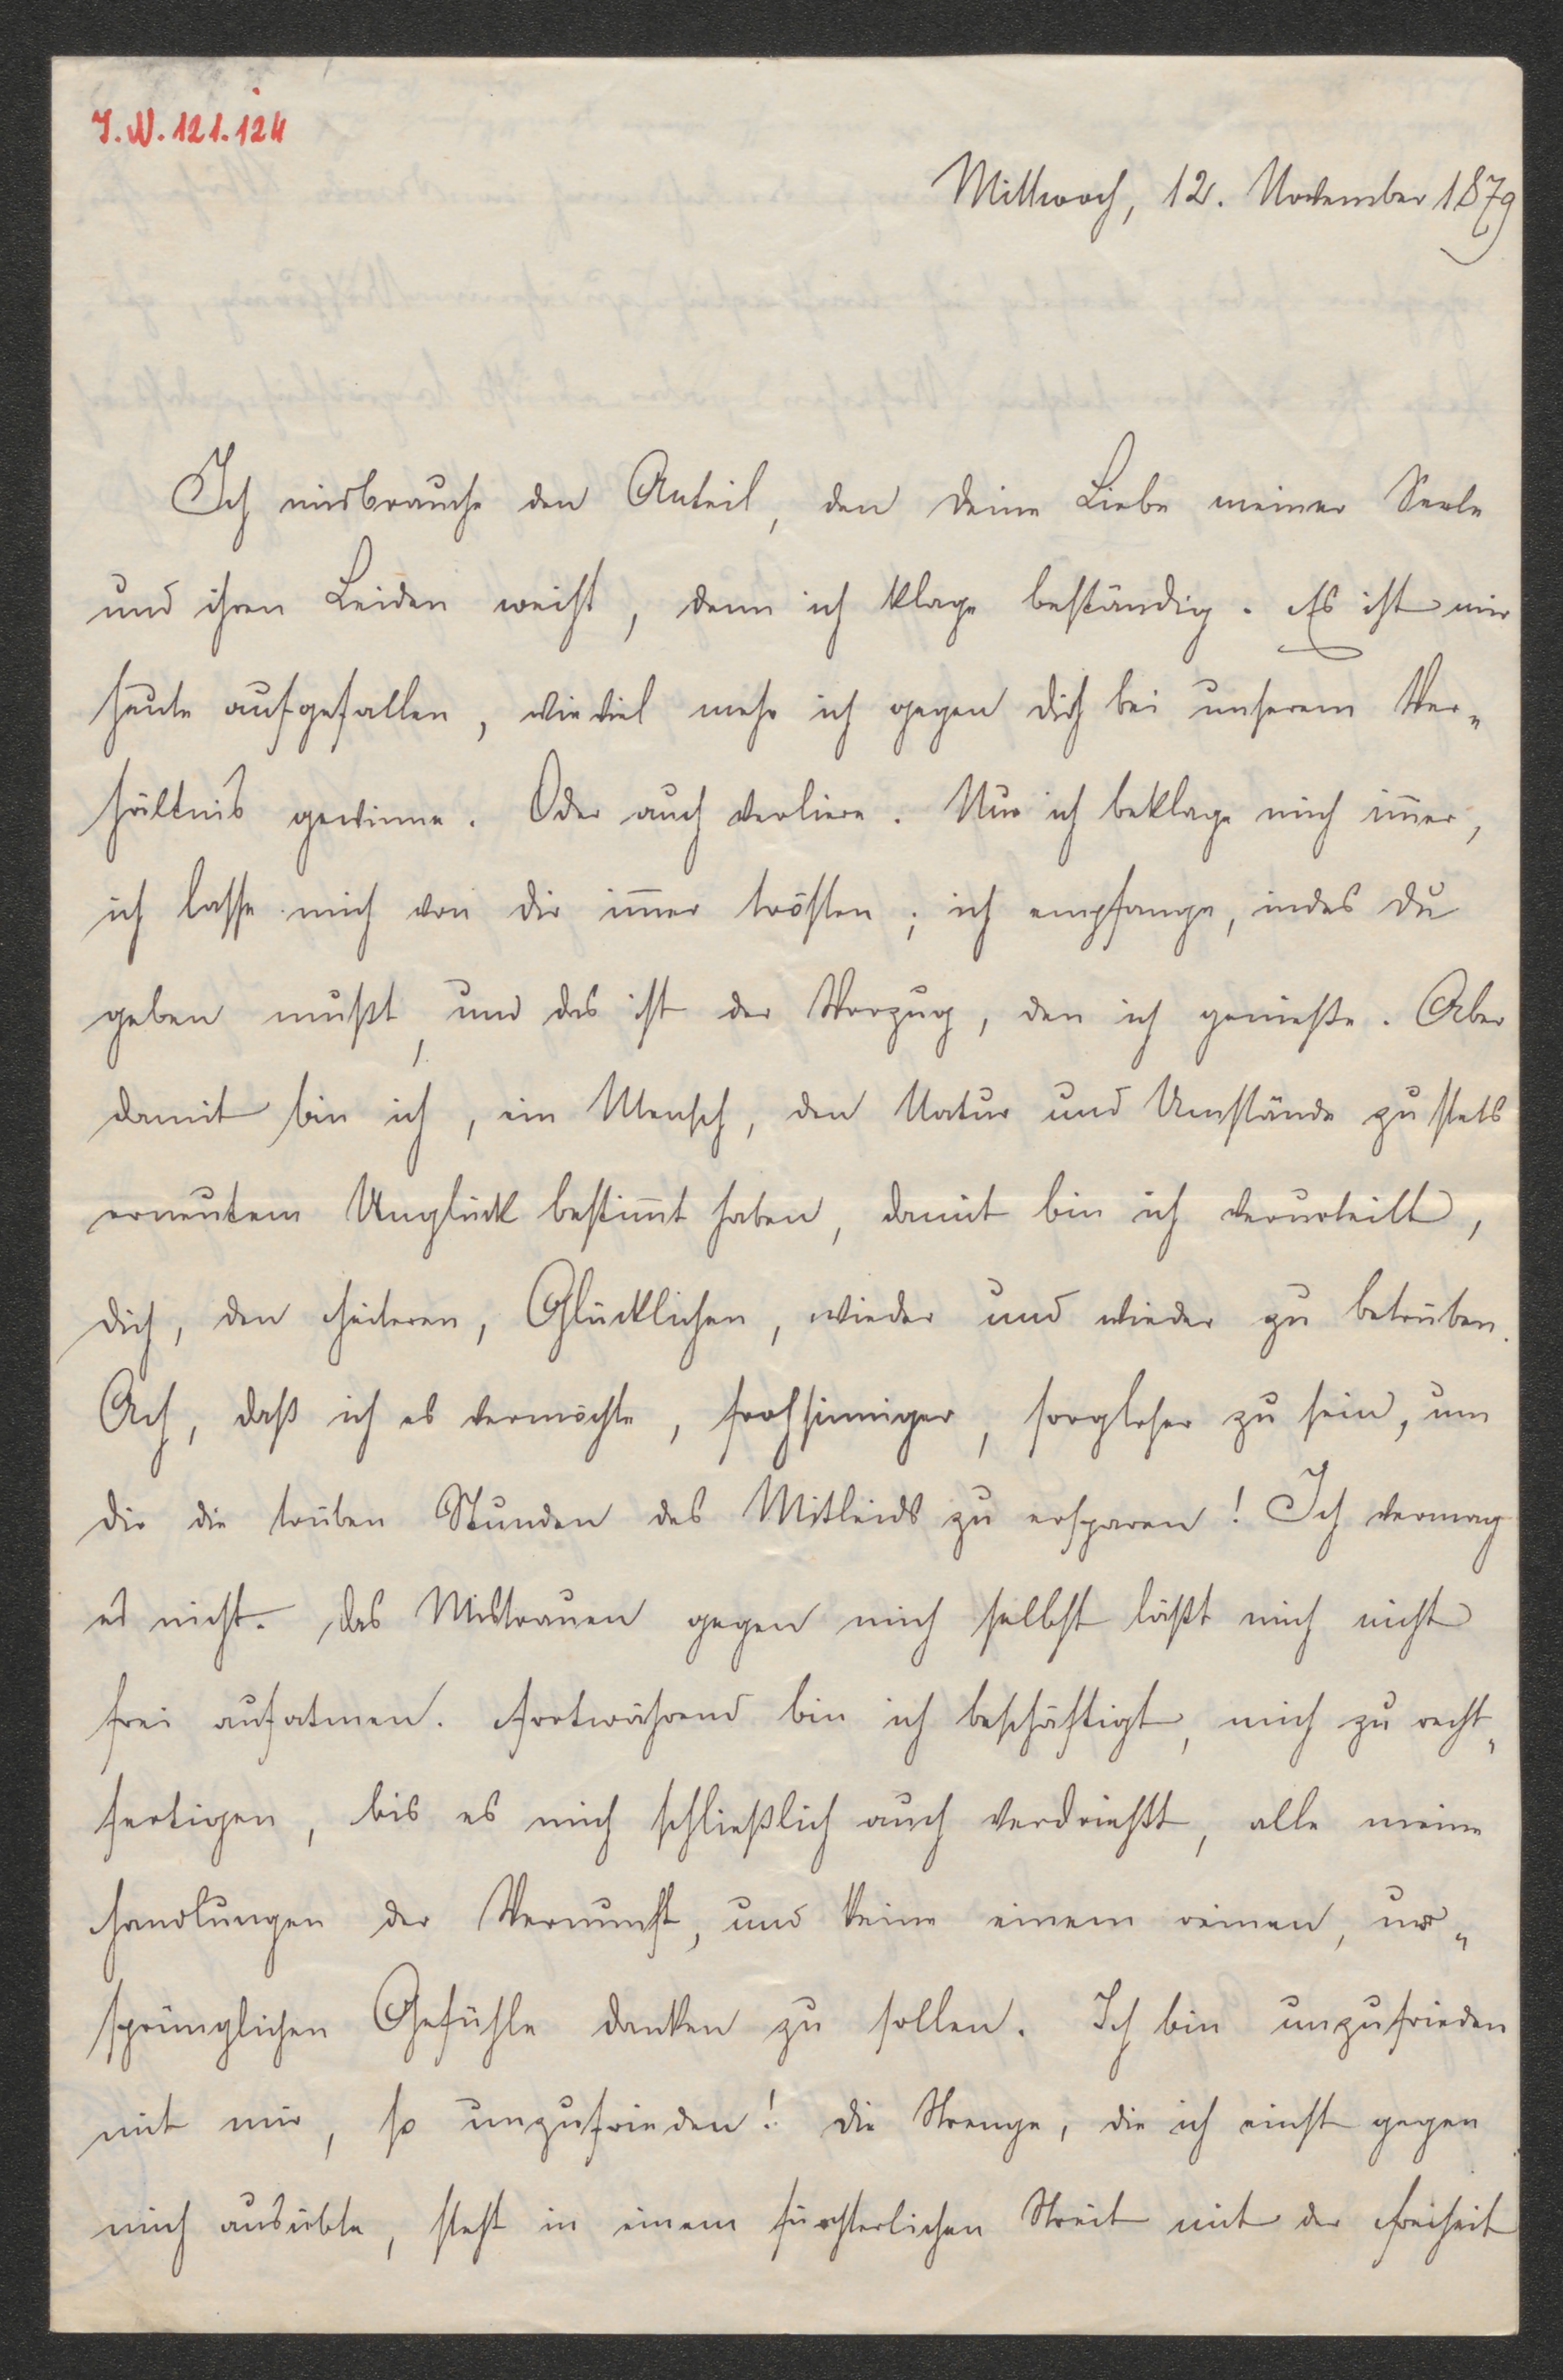 I. N. 121.124
Mittwoch, 12. November 1879
Ich misbrauche den Anteil, den deine Liebe meiner Seele
und ihren Leiden weiht, denn ich klage beständig. Es ist mir
heute aufgefallen, wieviel mehr ich gegen dich bei unserem Ver„
hältnis gewinne. Oder auch verliere. Nur ich beklage mich im̄er,
ich lasse mich von dir im̄er trösten; ich empfange, indes du
geben mußt, und das ist der Vorzug, den ich genieße. Aber
damit bin ich, ein Mensch, den Natur und Umstände zu stets
erneutem Unglück bestim̄t haben, damit bin ich verurteilt,
dich, den Heiteren, Glücklichen, wieder und wieder zu betrüben.
Ach, daß ich es vermöchte, frohsinniger, sorgloser zu sein, um
dir die trüben Stunden des Mitleids zu ersparen! Ich vermag
es nicht. Das Mistrauen gegen mich selbst läßt mich nicht
frei aufatmen. Fortwährend bin ich beschäftigt, mich zu recht„
fertigen, bis es mich schließlich auch verdrießt, alle meine
Handlungen der Vernunft, und keine einem reinen, ur„
sprünglichen Gefühle danken zu sollen. Ich bin unzufrieden
mit mir, so unzufrieden! Die Strenge, die ich einst gegen
mich ausübte, steht in einem fürchterlichen Streit mit der Freiheit